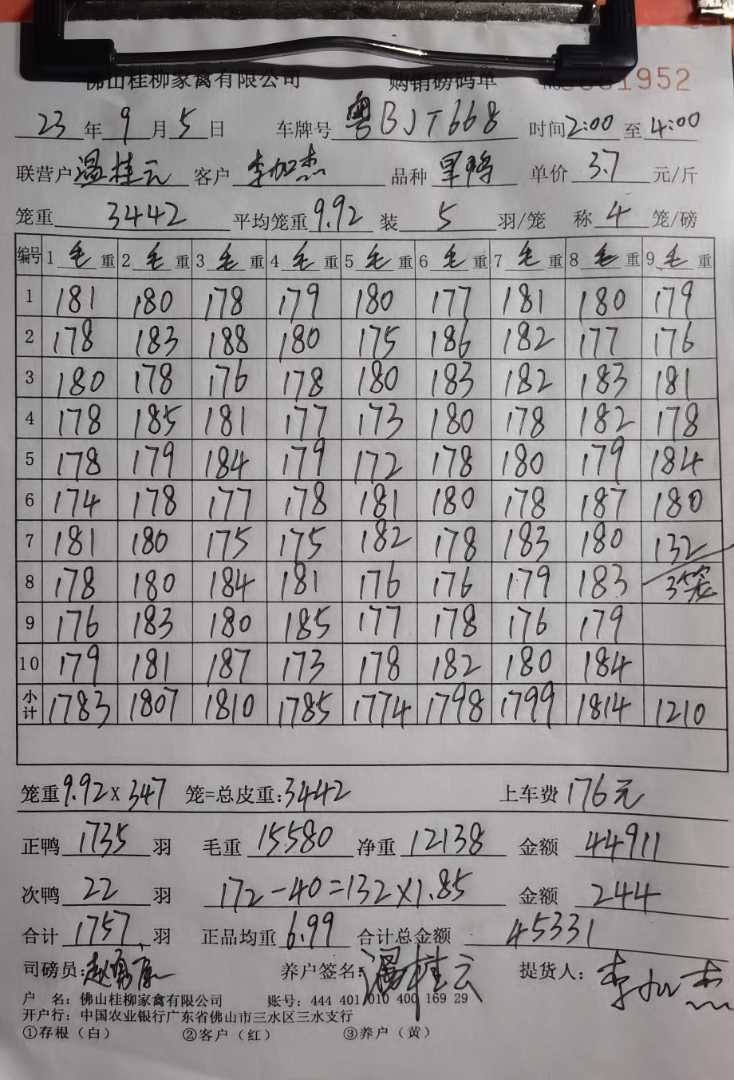 佛山桂柳家禽有限公司 购销磅码单 1952
23年9月5日 车牌号 粤BJT668 时间2:00至4:00
联营户 温桂云 客户 李加杰 品种 旱鸭 单价 3.7 元/斤
笼重 3442 平均笼重 9.92 装 5 羽/笼 称 4 笼/磅
编号 1 毛重 2 毛重 3 毛重 4 毛重 5 毛重 6 毛重 7 毛重 8 毛重 9 毛重
1 181 180 178 179 180 177 181 180 179
2 178 183 188 180 175 186 182 177 176
3 180 178 176 178 180 183 182 183 181
4 178 185 181 177 173 180 178 182 178
5 178 179 184 179 172 178 180 179 184
6 174 178 177 178 181 180 178 187 180
7 181 180 175 175 182 178 183 180 132
8 178 180 184 181 176 176 179 183 3笼
9 176 183 180 185 177 178 176 179
10 179 181 187 173 178 182 180 184
小计 1783 1807 1810 1785 1774 1798 1799 1814 1210
笼重9.92×347 笼=总皮重:3442 上车费 176元
正鸭 1735 羽 毛重 15580 净重 12138 金额 44911
次鸭 22 羽 172-40=132×1.85 金额 244
合计 1757 羽 正品均重 6.99 合计总金额 45331
司磅员: 养户签名: 温桂云 提货人: 李加杰
户 名: 佛山桂柳家禽有限公司 账号: 444 401 010 400 169 29
开户行: 中国农业银行广东省佛山市三水区三水支行
①存根(白) ②客户(红) ③养户(黄)